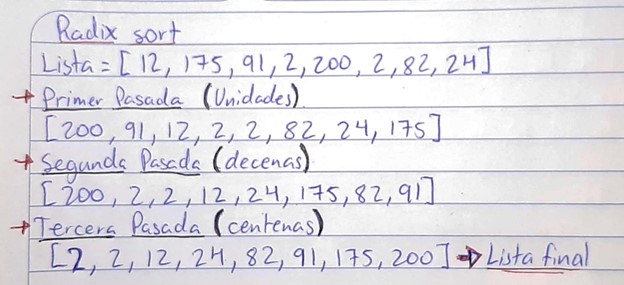 Radix sort
Lista = [12, 175, 91, 2, 200, 2, 82, 24]
→ Primer Pasada (Unidades)
[200, 91, 12, 2, 2, 82, 24, 175]
→ Segunda Pasada (decenas)
[200, 2, 2, 12, 24, 175, 82, 91]
→ Tercera Pasada (centenas)
[2, 2, 12, 24, 82, 91, 175, 200] → Lista final